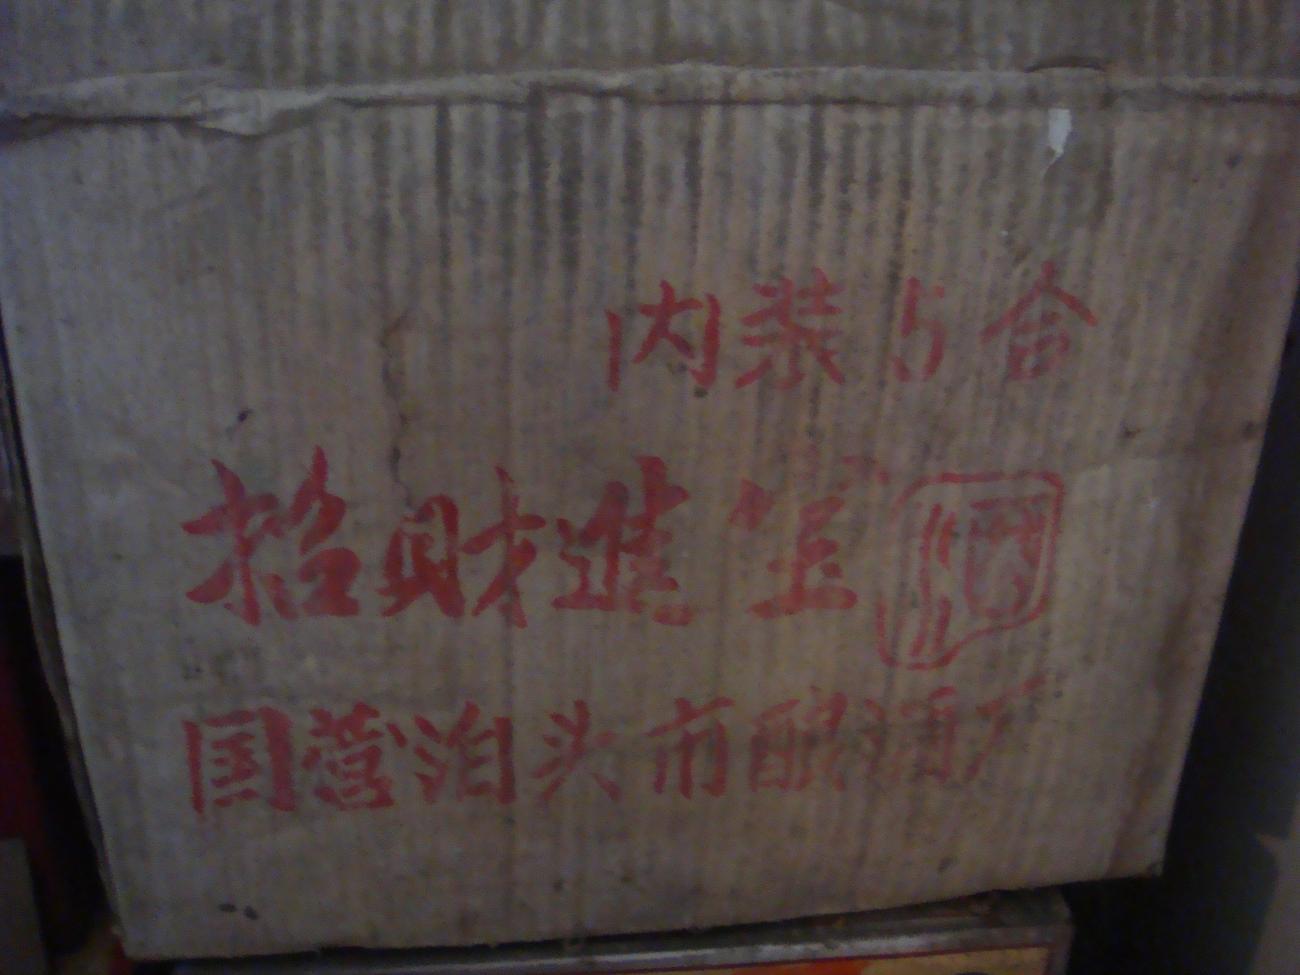 内装5合
招财進宝酒
国营泊头市酿酒厂